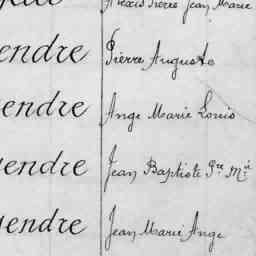 Jean Marie
endre Pierre Auguste
endre Ange Marie Louis
endre Jean Baptiste Pre Mie
endre Jean Marie Ange